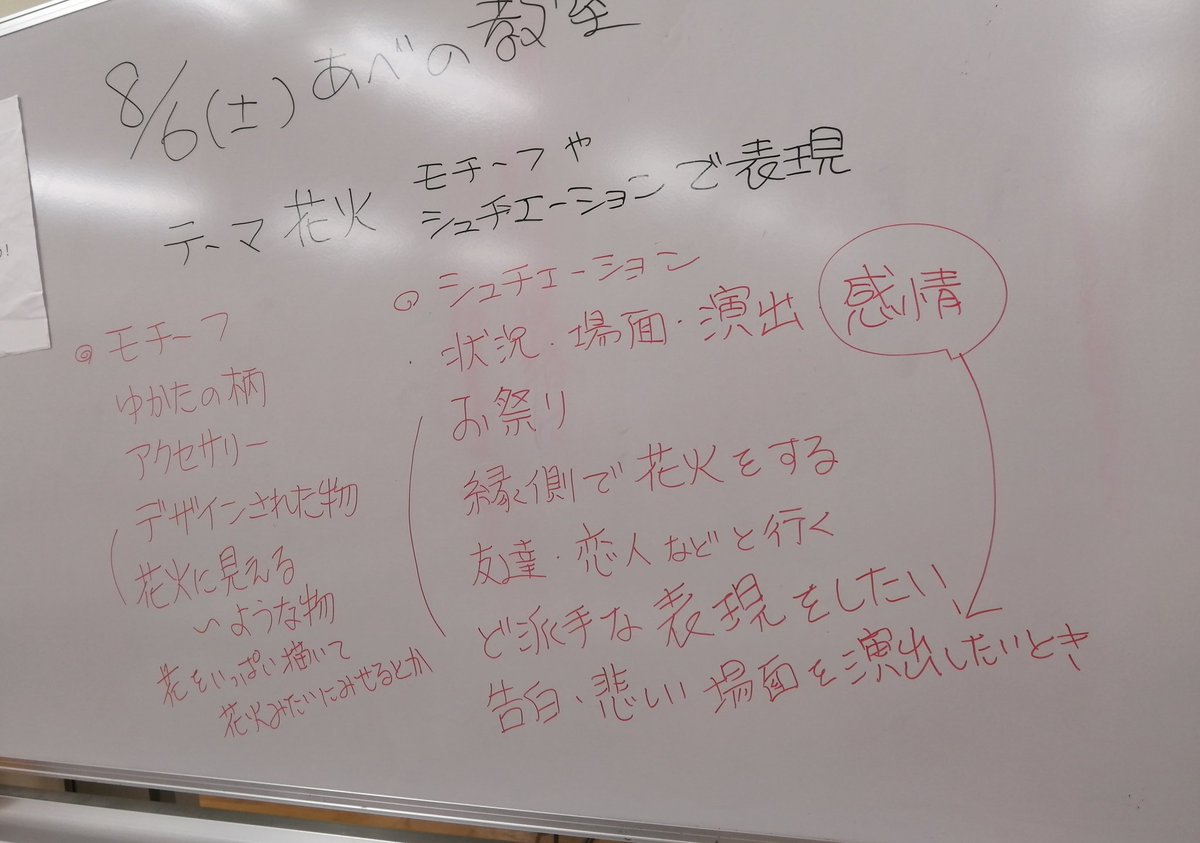 8/6(土)あべの教室
テーマ 花火 モチーフや
シュチエーションで表現
◎モチーフ
ゆかたの柄
アクセサリー
デザインされた物
花火に見える
いような物
花をいっぱい描いて
花火みたいにみせるとか
◎シュチエーション
状況・場面・演出 感情
お祭り
縁側で花火をする
友達・恋人などと行く
ど派手な表現をしたい
告白・悲しい場面を演出したいとき